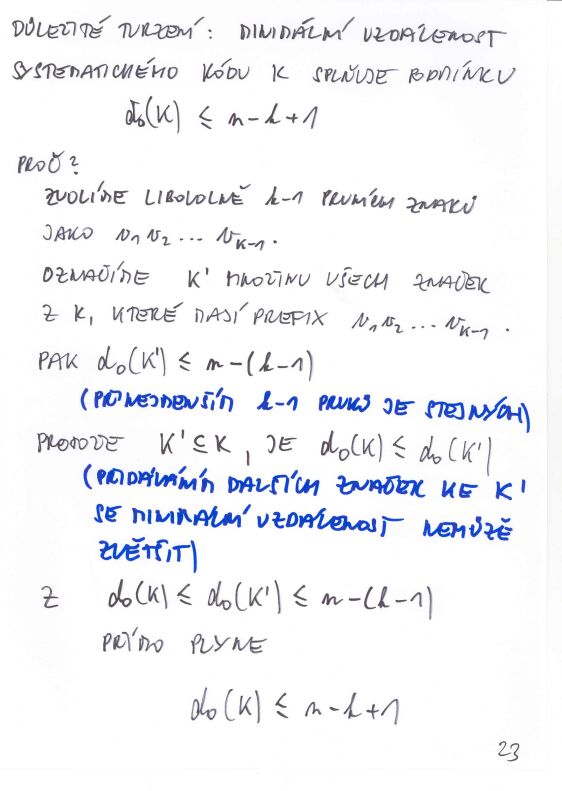 DŮLEŽITÉ TVRZENÍ: MINIMÁLNÍ VZDÁLENOST
SYSTEMATICKÉHO KÓDU K SPLŇUJE PODMÍNKU
d₀(K) ≤ n-k+1
PROČ?
ZVOLÍME LIBOLOLNĚ k-1 PRVNÍCH ZNAKŮ
JAKO v₁v₂...vₖ₋₁.
OZNAČÍME K' MNOŽINU VŠECH ZNAČEK
Z K, KTERÉ MAJÍ PREFIX v₁v₂...vₖ₋₁.
PAK d₀(K') ≤ n-(k-1)
(PŘINEJMENŠÍM k-1 PRVKŮ JE STEJNÝCH)
PROTOŽE K'⊆K, JE d₀(K) ≤ d₀(K')
(PŘIDÁVÁNÍM DALŠÍCH ZNAČEK KE K'
SE MINIMÁLNÍ VZDÁLENOST NEMŮŽE
ZVĚTŠIT)
Z d₀(K) ≤ d₀(K') ≤ n-(k-1)
PŘÍMO PLYNE
d₀(K) ≤ n-k+1
23